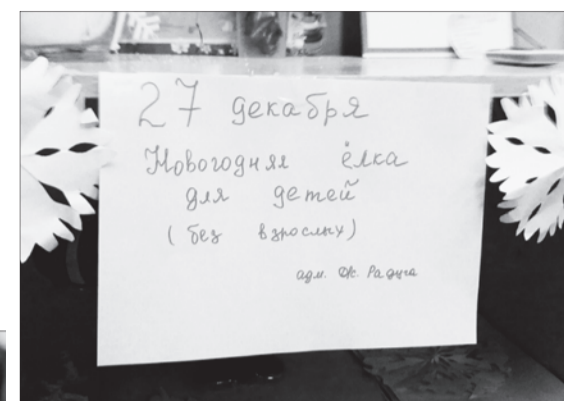 27 декабря
Новогодняя ёлка
для детей
(без взрослых)
адм. Радуга